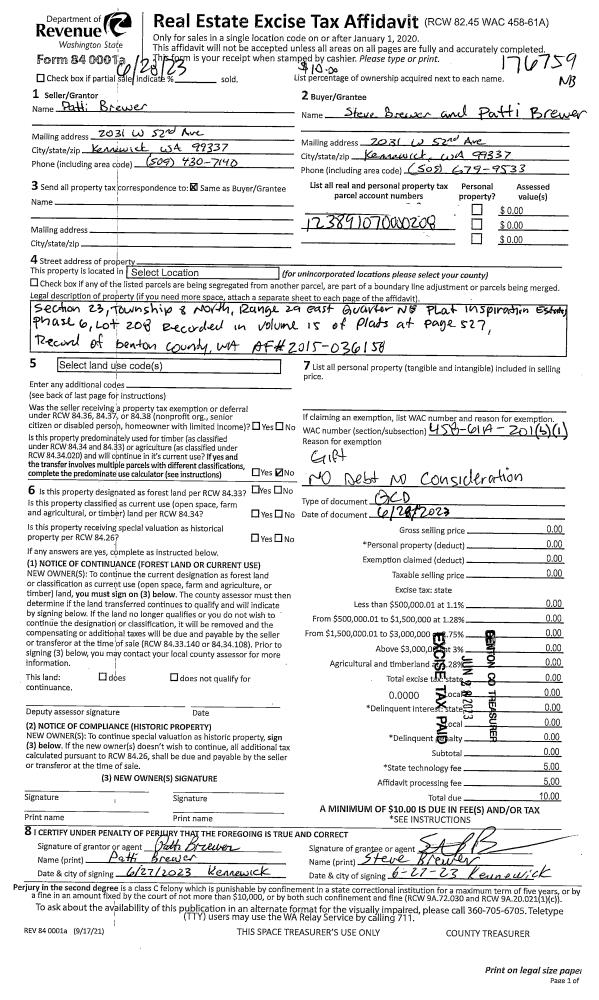 Department of
Revenue
Washington State
Form 84 0001a
Real Estate Excise Tax Affidavit (RCW 82.45 WAC 458-61A)
Only for sales in a single location code on or after January 1, 2020.
This affidavit will not be accepted unless all areas on all pages are fully and accurately completed.
This form is your receipt when stamped by cashier. Please type or print.
6/28/23
$10.00
176759
NB
Check box if partial sale, indicate % sold.
List percentage of ownership acquired next to each name.
1 Seller/Grantor
Name Patti Brewer
Mailing address 2031 W 52nd Ave
City/state/zip Kennewick, WA 99337
Phone (including area code) (509) 430-7140
2 Buyer/Grantee
Name Steve Brewer and Patti Brewer
Mailing address 2031 W 52nd Ave
City/state/zip Kennewick, WA 99337
Phone (including area code) (509) 679-9533
3 Send all property tax correspondence to: ☒ Same as Buyer/Grantee
Name
Mailing address
City/state/zip
List all real and personal property tax parcel account numbers
Personal property?
Assessed value(s)
123891070000208
$ 0.00
$ 0.00
$ 0.00
4 Street address of property
This property is located in Select Location (for unincorporated locations please select your county)
Check box if any of the listed parcels are being segregated from another parcel, are part of a boundary line adjustment or parcels being merged.
Legal description of property (if you need more space, attach a separate sheet to each page of the affidavit).
Section 23, Township 8 North, Range 29 east Quarter NE Plat Inspiration Estates
Phase 6, Lot 208 Recorded in volume 15 of Plats at page 527,
Record of benton County, WA AF# 2015-036158
5 Select land use code(s)
Enter any additional codes
(see back of last page for instructions)
Was the seller receiving a property tax exemption or deferral
under RCW 84.36, 84.37, or 84.38 (nonprofit org., senior
citizen or disabled person, homeowner with limited income)? ☐ Yes ☐ No
Is this property predominately used for timber (as classified
under RCW 84.34 and 84.33) or agriculture (as classified
under RCW 84.34.020) and will continue in it's current use? If yes and
the transfer involves multiple parcels with different classifications,
complete the predominate use calculator (see instructions) ☐ Yes ☑ No
6 Is this property designated as forest land per RCW 84.33? ☐ Yes ☐ No
Is this property classified as current use (open space, farm
and agricultural, or timber) land per RCW 84.34? ☐ Yes ☐ No
Is this property receiving special valuation as historical
property per RCW 84.26? ☐ Yes ☐ No
If any answers are yes, complete as instructed below.
(1) NOTICE OF CONTINUANCE (FOREST LAND OR CURRENT USE)
NEW OWNER(S): To continue the current designation as forest land
or classification as current use (open space, farm and agriculture, or
timber) land, you must sign on (3) below. The county assessor must then
determine if the land transferred continues to qualify and will indicate
by signing below. If the land no longer qualifies or you do not wish to
continue the designation or classification, it will be removed and the
compensating or additional taxes will be due and payable by the seller
or transferor at the time of sale (RCW 84.33.140 or 84.34.108). Prior to
signing (3) below, you may contact your local county assessor for more
information.
This land: ☐ does ☐ does not qualify for
continuance.
Deputy assessor signature Date
(2) NOTICE OF COMPLIANCE (HISTORIC PROPERTY)
NEW OWNER(S): To continue special valuation as historic property, sign
(3) below. If the new owner(s) doesn't wish to continue, all additional tax
calculated pursuant to RCW 84.26, shall be due and payable by the seller
or transferor at the time of sale.
(3) NEW OWNER(S) SIGNATURE
Signature Signature
Print name Print name
7 List all personal property (tangible and intangible) included in selling
price.
If claiming an exemption, list WAC number and reason for exemption.
WAC number (section/subsection) 458-61A-201(b)(1)
Reason for exemption
Gift
NO Debt NO Consideration
Type of document QCD
Date of document 6/28/2023
Gross selling price 0.00
*Personal property (deduct) 0.00
Exemption claimed (deduct) 0.00
Taxable selling price 0.00
Excise tax: state
Less than $500,000.01 at 1.1% 0.00
From $500,000.01 to $1,500,000 at 1.28% 0.00
From $1,500,000.01 to $3,000,000 at 2.75% 0.00
Above $3,000,000 at 3% 0.00
Agricultural and timberland at 1.28% 0.00
Total excise tax: state 0.00
0.0000 Local 0.00
*Delinquent interest: state 0.00
Local 0.00
*Delinquent penalty 0.00
Subtotal 0.00
*State technology fee 5.00
Affidavit processing fee 5.00
Total due 10.00
BENTON CO TREASURER
JUN 28 2023
EXCISE TAX PAID
A MINIMUM OF $10.00 IS DUE IN FEE(S) AND/OR TAX
*SEE INSTRUCTIONS
8 I CERTIFY UNDER PENALTY OF PERJURY THAT THE FOREGOING IS TRUE AND CORRECT
Signature of grantor or agent Patti Brewer
Name (print) Patti Brewer
Date & city of signing 6/27/2023 Kennewick
Signature of grantee or agent
Name (print) Steve Brewer
Date & city of signing 6-27-23 Kennewick
Perjury in the second degree is a class C felony which is punishable by confinement in a state correctional institution for a maximum term of five years, or by
a fine in an amount fixed by the court of not more than $10,000, or by both such confinement and fine (RCW 9A.72.030 and RCW 9A.20.021(1)(c)).
To ask about the availability of this publication in an alternate format for the visually impaired, please call 360-705-6705. Teletype
(TTY) users may use the WA Relay Service by calling 711.
REV 84 0001a (9/17/21)
THIS SPACE TREASURER'S USE ONLY
COUNTY TREASURER
Print on legal size paper
Page 1 of